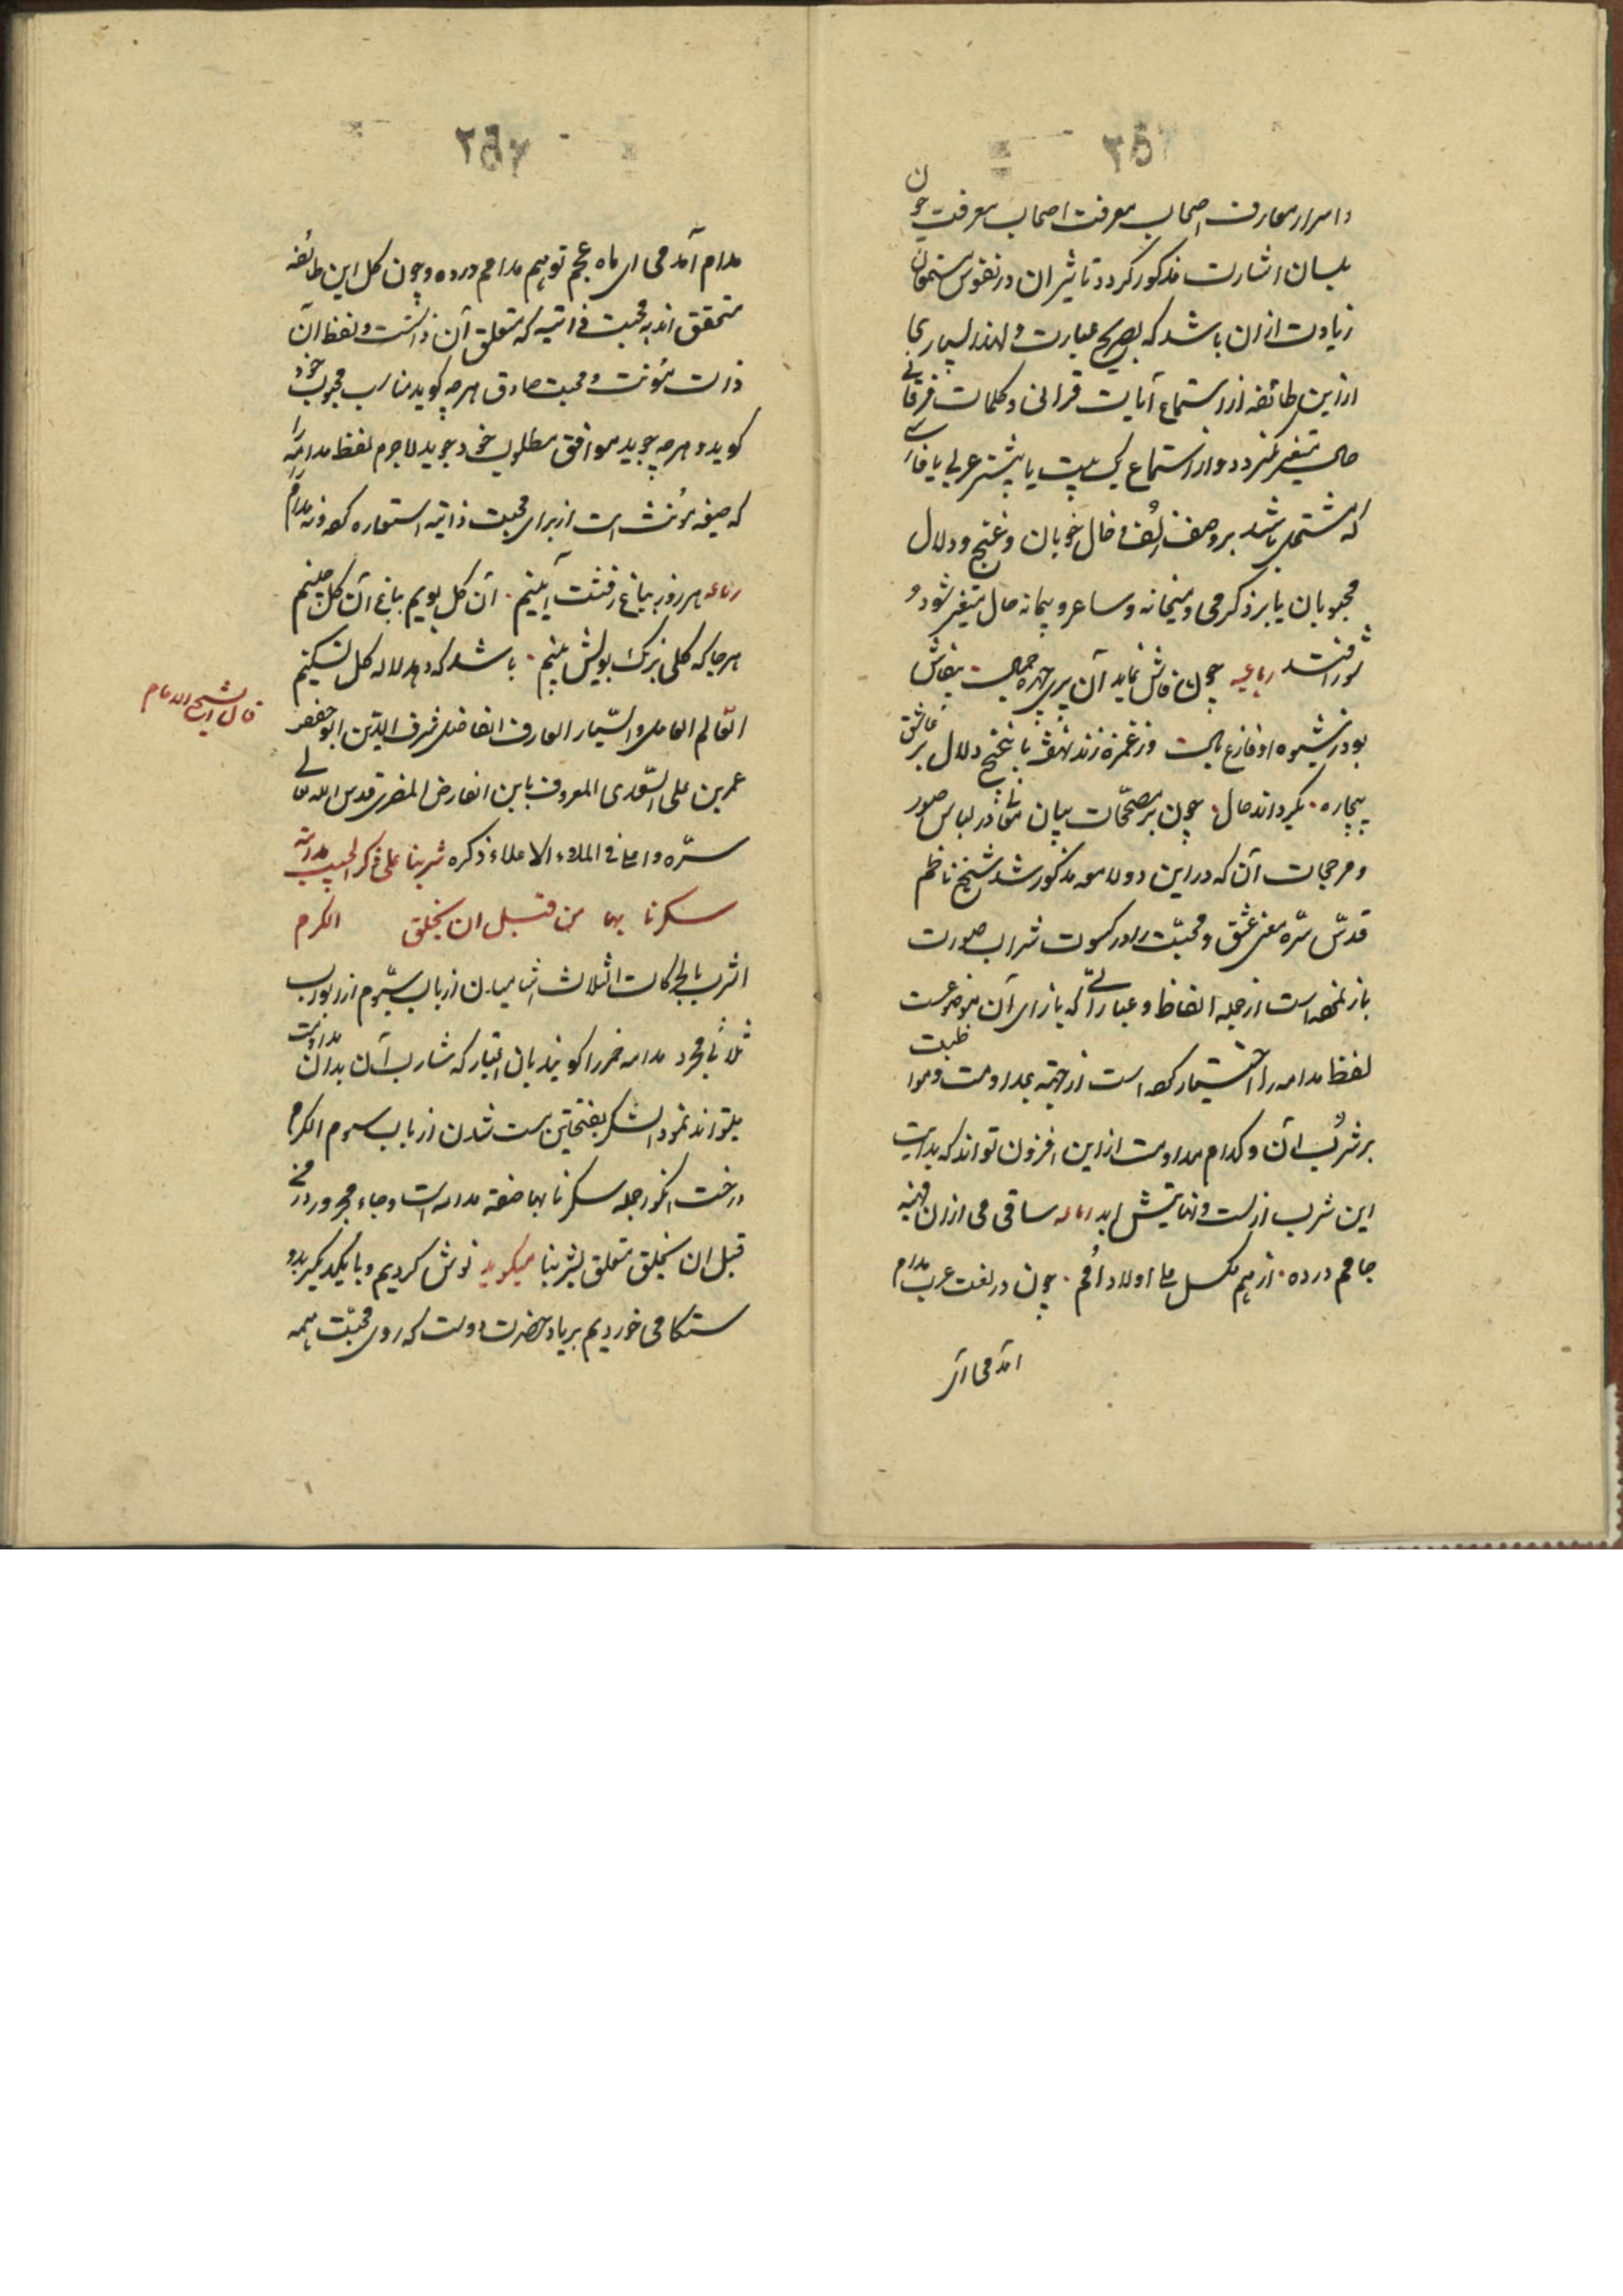 و اسرار معارف اصحاب معرفت اصحاب معرفت چون
بلسان اشارت مذکور گردد تاثیر آن در نفوس مستمعان
زیادت از آن باشد که بصریح عبارت و لهذا بسیاری
از این طائفه از استماع آیات قرانی و کلمات فرقانی
حال متغیر نگردد و از استماع یک بیت یا بیشتر عربی یا فارسی
که مشتمل باشد بر وصف زلف و خال خوبان و غنج و دلال
محبوبان یا بر ذکر می و میخانه و ساغر و پیمانه حال متغیر شود و
در شور افتد رباعیه چون فاش نماید آن پری چهره جمال عاشق
بود از شیوه او فارغ بال ور غمزه زند نهفته با غنج و دلال بر عاشق
بیچاره بگرداند حال چون بر مصححات بیان معانی در لباس صور
و مرجحات آن که در این دو لامعه مذکور شد شیخ ناظم
قدس سره معنی عشق و محبت را در کسوت شراب صورت
باز نموده است از جمله الفاظ و عباراتی که بازای آن موضوعست
لفظ مدامه را اختیار کرده است از جهت مداومت و مواظبت
بر شرب آن و کدام مداومت از این افزون تواند که بدایت
این شرب ازلست و نهایتش ابد رباعیه ساقی می از آن
جامم در ده از هم مکسل علی اولاد اُمم چون در لغت عرب مدام
آمد می آی
مدام آمد می ای ماه عجم تو هم مدامم در ده و چون کل این طائفه
متحقق اند به محبت ذاتیه که متعلق آن ذاتست و لفظ آن
ذات مؤنث و محبت صادق هر چه گوید مناسب محبوب خود
گوید و هر چه جوید موافق مطلوب خود جوید لاجرم لفظ مدامه را
که صیغه مؤنث است از برای محبت ذاتیه استعاره کرده نه مدام
رباعیه هر روز بباغ رفتنت آیینم آن گل بویم بباغ آن گل چینم
هر جا که گلی برنگ و بویش بینم باشد که دهد لاله گل تسکینم
قال الشیخ الامام
العالم العامل و السیار العارف الفاضل شرف الدین ابو حفص
عمر بن علی السعدی المعروف بابن الفارض المصری قدس الله تعالی
سره و اعلی فی الملاء الاعلاء ذکره شربنا علی ذکر الحبیب مدامة
سکرنا بها من قبل ان یخلق الکرم
الشرب بالحرکات الثلاث آشامیدن از باب سیوم از ابواب
ثلاثی مجرد مدامه خمر را گویند بآن اعتبار که شارب آن بدان مداومت
میتواند نمود السکر بفتحتین مست شدن از باب سیوم الکرم
درخت انگور جمله سکرنا بها صفة مدامه است و جار و مجرور در من
قبل ان یخلق متعلق بشربنا میگوید نوش کردیم و با یکدیگر بدو
ستکامی خوردیم بر یاد حضرت دوست که روی محبت همه